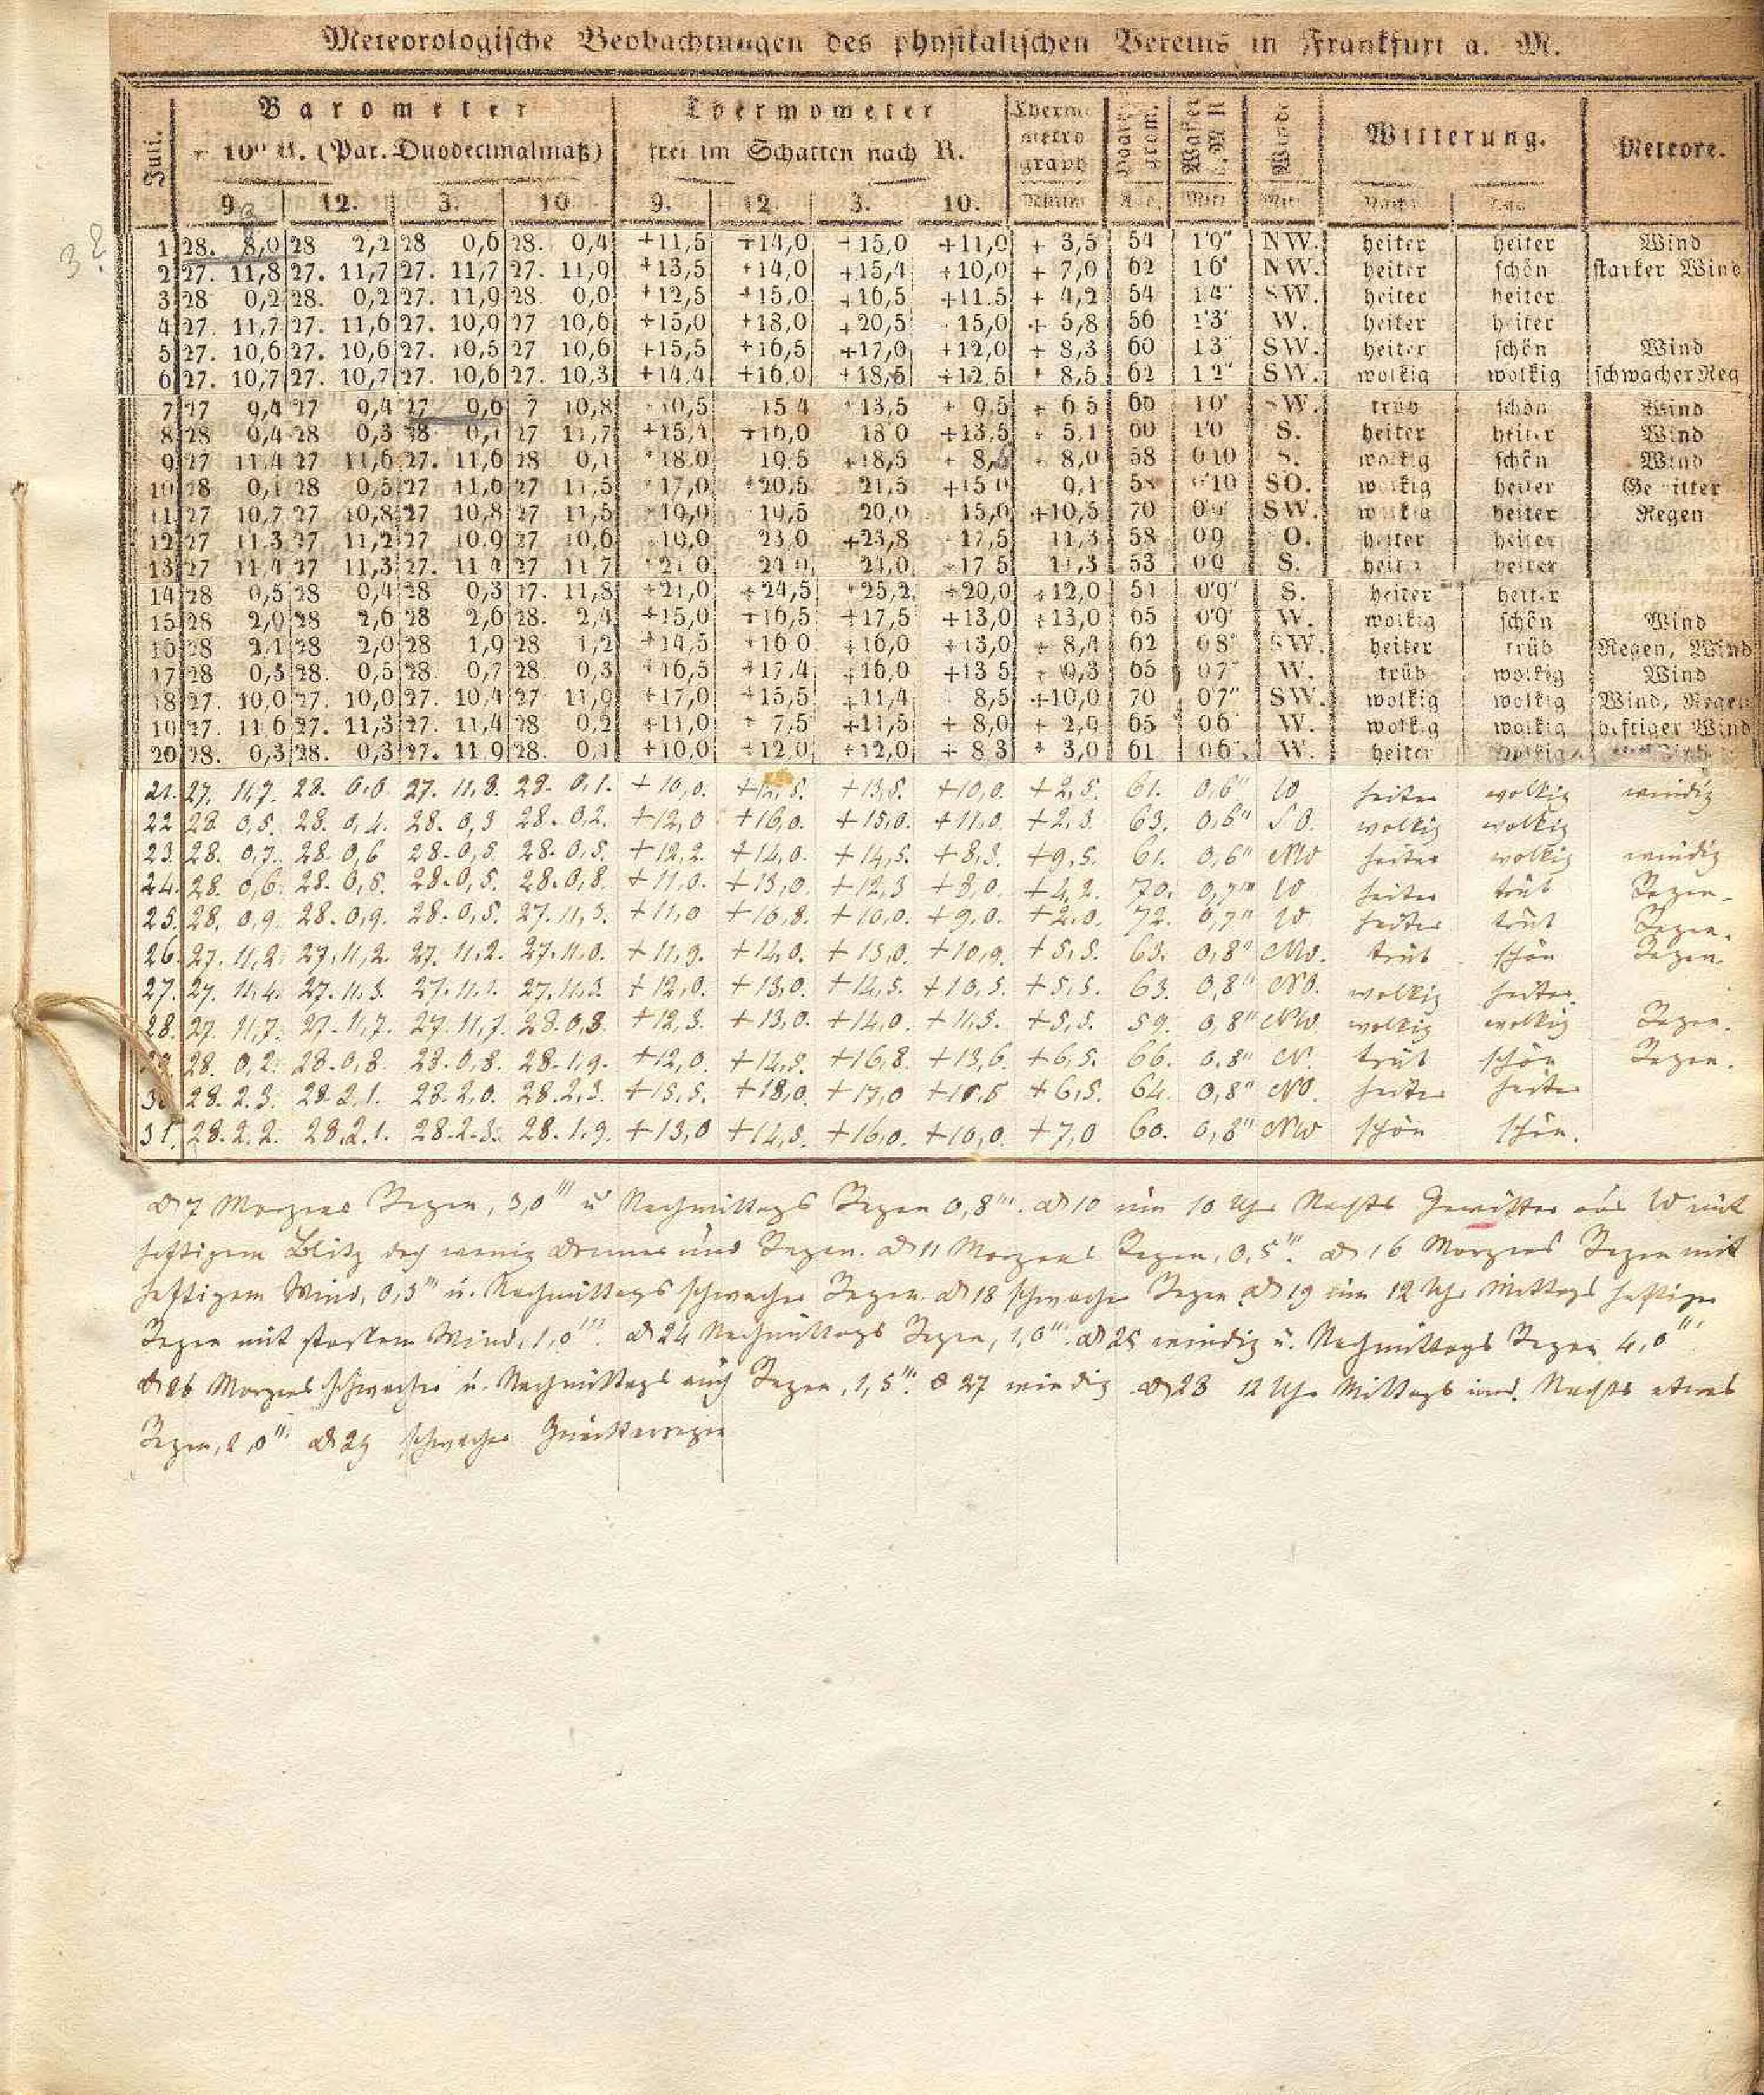 Meteorologische Beobachtungen des physikalischen Vereins in Frankfurt a. M.
Juli. Barometer Thermometer Thermometrograph Witterung. Meteore.
+ 10° R. (Par. Duodecimalmaß) frei im Schatten nach R.
9. 12. 3. 10. 9. 12. 3. 10. Nacht Tag
1 28. 8,0 28 2,2 28 0,6 28. 0,4 +11,5 +14,0 +15,0 +11,0 + 3,5 54 1'9" NW. heiter heiter Wind
2 27. 11,8 27. 11,7 27. 11,7 27. 11,9 +13,5 +14,0 +15,4 +10,0 + 7,0 62 1 6" NW. heiter schön starker Wind
3 28 0,2 28. 0,2 27. 11,9 28 0,0 +12,5 +15,0 +16,5 +11.5 + 4,2 54 1 4" SW. heiter heiter
4 27. 11,7 27. 11,6 27. 10,9 27 10,6 +15,0 +18,0 +20,5 15,0 + 5,8 56 1'3' W. heiter heiter
5 27. 10,6 27. 10,6 27. 10,5 27 10,6 +15,5 +16,5 +17,0 +12,0 + 8,3 60 1 3" SW. heiter schön Wind
6 27. 10,7 27. 10,7 27. 10,6 27. 10,3 +14,4 +16,0 +18,5 +12,5 + 8,5 62 1 2" SW. wolkig wolkig schwacher Reg
7 27 9,4 27 9,4 27 9,6 7 10,8 10,5 15 4 +13,5 + 9,5 + 6 5 60 1 0' SW. trüb schön Wind
8 28 0,4 28 0,3 28 0,1 27 11,7 +15,1 +16,0 18 0 +13,5 + 5,1 60 1'0 S. heiter heiter Wind
9 27 11,4 27 11,6 27. 11,6 28 0,1 +18,0 19,5 +18,5 + 8, 8,0 58 0 10 S. wolkig schön Wind
10 28 0,1 28 0,5 27 11,6 27 11,5 +17,0 +20,5 21,5 +15 0 9,1 58 0'10 SO. wolkig heiter Gewitter
11 27 10,7 27 10,8 27 10,8 27 11,5 19,0 19,5 20,0 15,0 +10,5 70 0 9 SW. wolkig heiter Regen
12 27 11,3 27 11,2 27 10,9 27 10,6 19,0 23,0 +23,8 17,5 11,3 58 0 9 O. heiter heiter
13 27 11,4 27 11,3 27. 11 4 27 11 7 +21 0 24 0 24,0 +17 5 11,3 53 0 9 S. heiter heiter
14 28 0,5 28 0,4 28 0,3 27. 11,8 +21,0 +24,5 +25,2 +20,0 +12,0 51 0'9" S. heiter heiter
15 28 2,0 28 2,6 28 2,6 28. 2,4 +15,0 +16,5 +17,5 +13,0 +13,0 65 0'9' W. wolkig schön Wind
16 28 2,1 28 2,0 28 1,9 28 1,2 +14,5 +16 0 +16,0 +13,0 + 8,4 62 0 8" SW. heiter trüb Regen, Wind
17 28 0,5 28. 0,5 28. 0,7 28. 0,3 +16,5 +17,4 +16,0 +13 5 + 9,3 65 0 7" W. trüb wolkig Wind
18 27. 10,0 27. 10,0 27. 10,4 27 11,0 +17,0 +15,5 +11,4 8,5 +10,0 70 0'7" SW. wolkig wolkig Wind, Regen
19 27. 11 6 27. 11,3 27. 11,4 28 0,2 +11,0 + 7,5 +11,5 + 8,0 + 2,9 65 0 6 W. wolkig wolkig heftiger Wind
20 28. 0,3 28. 0,3 27. 11 9 28. 0,1 +10,0 +12 0 +12,0 + 8 3 + 3,0 61 0 6 W. heiter wolkig
21. 27. 11,7. 28. 0,0. 27. 11,8. 28. 0,1. +10,0. +12,5. +13,5. +10,0. +2,5. 61. 0,6" W heiter wolkig windig
22 28. 0,5. 28. 0,4. 28. 0,3 28. 0,2. +12,0 +16,0. +15,0. +11,0. +2,3. 63. 0,6" SO. wolkig wolkig
23. 28. 0,7. 28. 0,6 28. 0,5. 28. 0,5. +12,2. +14,0. +14,5. +8,3. +9,5. 61. 0,6" NW heiter wolkig windig
24. 28. 0,6. 28. 0,5. 28. 0,5. 28. 0,8. +11,0. +13,0. +12,3 +8,0. +4,2. 70. 0,7" W heiter trüb Regen.
25. 28. 0,9. 28. 0,9. 28. 0,5. 27. 11,3. +11,0 +16,8. +10,0. +9,0. +2,0. 72. 0,7" W. heiter trüb Regen.
26. 27. 11,2. 27. 11,2. 27. 11,2. 27. 11,0. +11,9. +14,0. +15,0. +10,9. +5,5. 63. 0,8" NW. trüb schön Regen.
27. 27. 11,4. 27. 11,3. 27. 11,1. 27. 11,3. +12,0. +13,0. +14,5. +10,5. +5,5. 63. 0,8" NO. wolkig heiter.
28. 27. 11,7. 27. 11,7. 27. 11,7. 28. 0,3. +12,3. +13,0. +14,0. +11,5. +5,5. 59. 0,8" NW wolkig wolkig Regen.
28. 0,2. 28. 0,8. 28. 0,8. 28. 1,9. +12,0. +14,5. +16,8. +13,6. +6,5. 66. 0,8" N. trüb schön Regen.
28. 2,3. 28. 2,1. 28. 2,0. 28. 2,3. +15,5. +18,0. +17,0 +6,5. 64. 0,8" NO. heiter heiter
31. 28. 2,2. 28. 2,1. 28. 2,3. 28. 1,9. +13,0 +14,5. +16,0. +10,0. +7,0 60. 0,8" NW schön schön.
D 7 Morgens Regen, 3,0''' u Nachmittags Regen 0,8'''. D 10 um 10 Uhr Nachts Gewitter aus W mit
heftigem Blitz doch wenig Donner und Regen. D 11 Morgens Regen, 0,5'''. D 16 Morgens Regen mit
heftigem Wind, 0,3''' u. Nachmittags schwacher Regen. D 18 schwacher Regen D 19 um 12 Uhr Mittags heftiger
Regen mit starkem Wind, 1,0'''. D 24 Nachmittags Regen, 1,0'''. D 25 windig u. Nachmittags Regen 4,0'''.
D 26 Morgens schwacher u. Nachmittags auch Regen, 1,5'''. D 27 windig D 28 12 Uhr Mittags und Nachts etwas
Regen, 2,0''' D 29 schwacher Gewitterregen